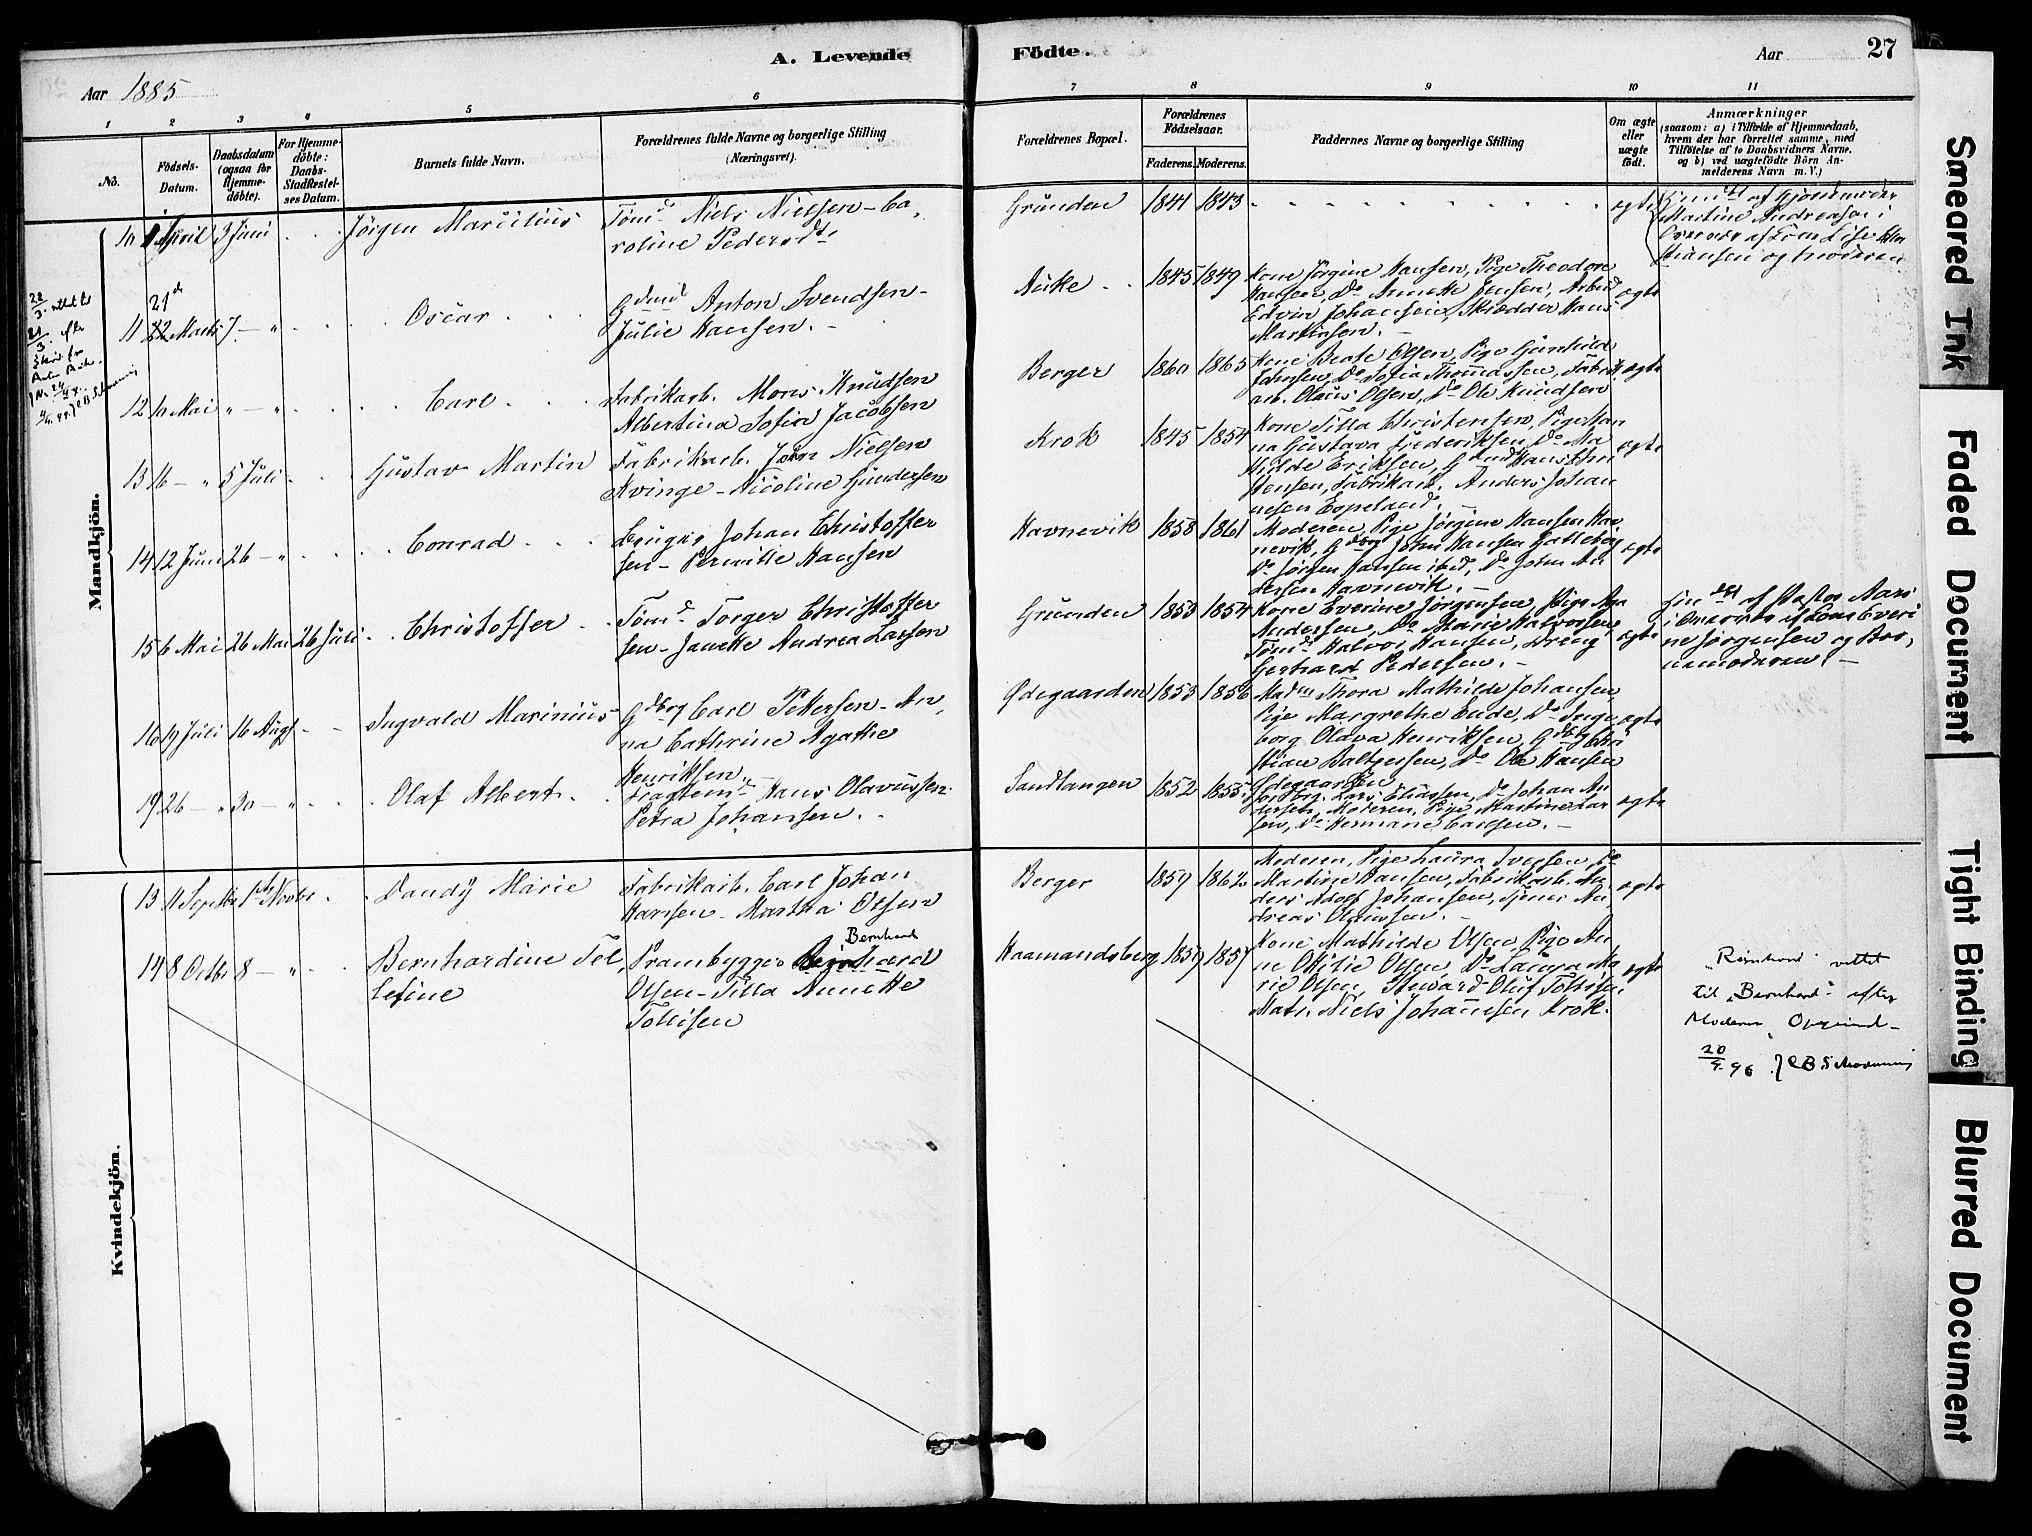 A. Levende Födte.
Aar 27
Aar 1885
1 2 3 4 5 6 7 8 9 10 11
No.
Födsels-
Datum.
Daabsdatum
(ogsaa for
Hjemme-
döbte).
For Hjemme-
döbte:
Daabs-
Stadfæstel-
ses Datum.
Barnets fulde Navn.
Forældrenes fulde Navne og borgerlige Stilling
(Næringsvei).
Forældrenes Bopæl.
Forældrenes
Födselsaar.
Faderens. Moderens.
Faddernes Navne og borgerlige Stilling
Om ægte
eller
uægte
födt.
Anmærkninger
(saasom: a) i Tilfælde af Hjemmedaab,
hvem der har forrettet samme, med
Tilföielse af to Daabsvidners Navne,
og b) ved uægtefödte Börn An-
melderens Navn m. V.)
Mandkjön.
10 April 3 Juni Jörgen Marcilius
Tömd Niels Nielsen – Ca,
roline Pedersdtr
Grunden 1841 1843 ægte
Martine Andreasen i
11 21de 22 Marts 7 – " Oscar
Anton Svendsen –
Julie Hansen. –
Auke 1845 1849
Kone Jörgine Hansen, Pige Theodore
Hansen, Do Annette Jensen, Arbmd
Edvin Johansen, Skrædder Hans
Martinsen. –
ægte
12 10 Mai " – " Carl
Fabrikarb. Mons Knudsen
Albertina Sofia Jacobsen
Berger 1860 1865
Kone Beate Olsen, Pige Gunhild
Johnsen, Do Sofia Thomassen, Fabrik
arb. Olaus Olsen, Do Ole Knudsen
ægte
13 16 – " 5 Juli Gustav Martin
Fabrikarb. John Nielsen
Kvinge – Nicoline Gundersen
Krok 1845 1854
Kone Tilla Christensen, Pige Han
na Gustava Frederiksen, Do Ma
thilde Eriksen, Hans Chri
stensen, Fabrikarb. Anders Johan
nesen Espeland. –
ægte
14 12 Juni 26 – " Conrad
Johan Christoffer
sen – Pernille Hansen
Havnevik 1858 1861
Moderen, Pige Jörgine Hansen Hav
nevik, John Hansen
Do Jörgen Hansen ibid, Do John An
dersen Havnevik. –
ægte
15 6 Mai 26 Mai 26 Juli Christoffer
Tömd Torger Christoffer
sen – Janette Andrea Larsen
Grunden 1853 1854
Kone Everine Jörgensen, Pige
Andersen, Do Marie Halvorsen,
Tömd Halvor Hansen, Dreng
Gerhard Pedersen. –
ægte
af Pastor Aars
af Kone Everi
ne Jörgensen og Bar,
nemoderen. –
16 19 Juli 16 Augs Ingvald Marinius
Gdbrg Carl Pettersen – An,
na Cathrine Agathe
Henriksen. –
Ödegaarden 1853 1856
Madm Thora Mathilde Johansen,
Pige Margrethe Eude, Do Inge
borg Olava Henriksen, Gdbrg Chri
stian Baltzersen, Do Ole Hansen
Ödegaarden
ægte
19 26 – " 30 – " Olaf Albert
Hans Olavussen
Petra Johansen. –
Sandtangen 1852 1855
Lars Eliassen, Do Johan An
dersen, Moderen, Pige Martine Lar
sen, Do Hermane Carlsen. –
ægte
Kvindekjön.
13 11 Septbr 1ste Novbr Dandy Marie
Fabrikarb. Carl Johan
Hansen – Martha Olsen
Berger 1859 1862
Moderen, Pige Laura Iversen, Do
Martine Hansen, Fabrikarb. An
ders Adolf Johansen, Tjener An
dreas Olaussen. –
ægte
14 8 Octbr 8 – " Bernhardine Tel,
lefine
Prambygger Bernhard
Olsen – Tilla Annette
Tollisen
Haamandsberg 1859 1857
Kone Mathilde Olsen, Pige An
ne Otilie Olsen, Do Laura Ma
rie Olsen, Steward Oluf Tollisen
Matr. Niels Johansen Krok.
ægte
"Reinhard" rettet
til "Bernhard" efter
Moderens Opgivend–
20/4 96
Smeared Ink
Faded Document
Tight Binding
Blurred Document